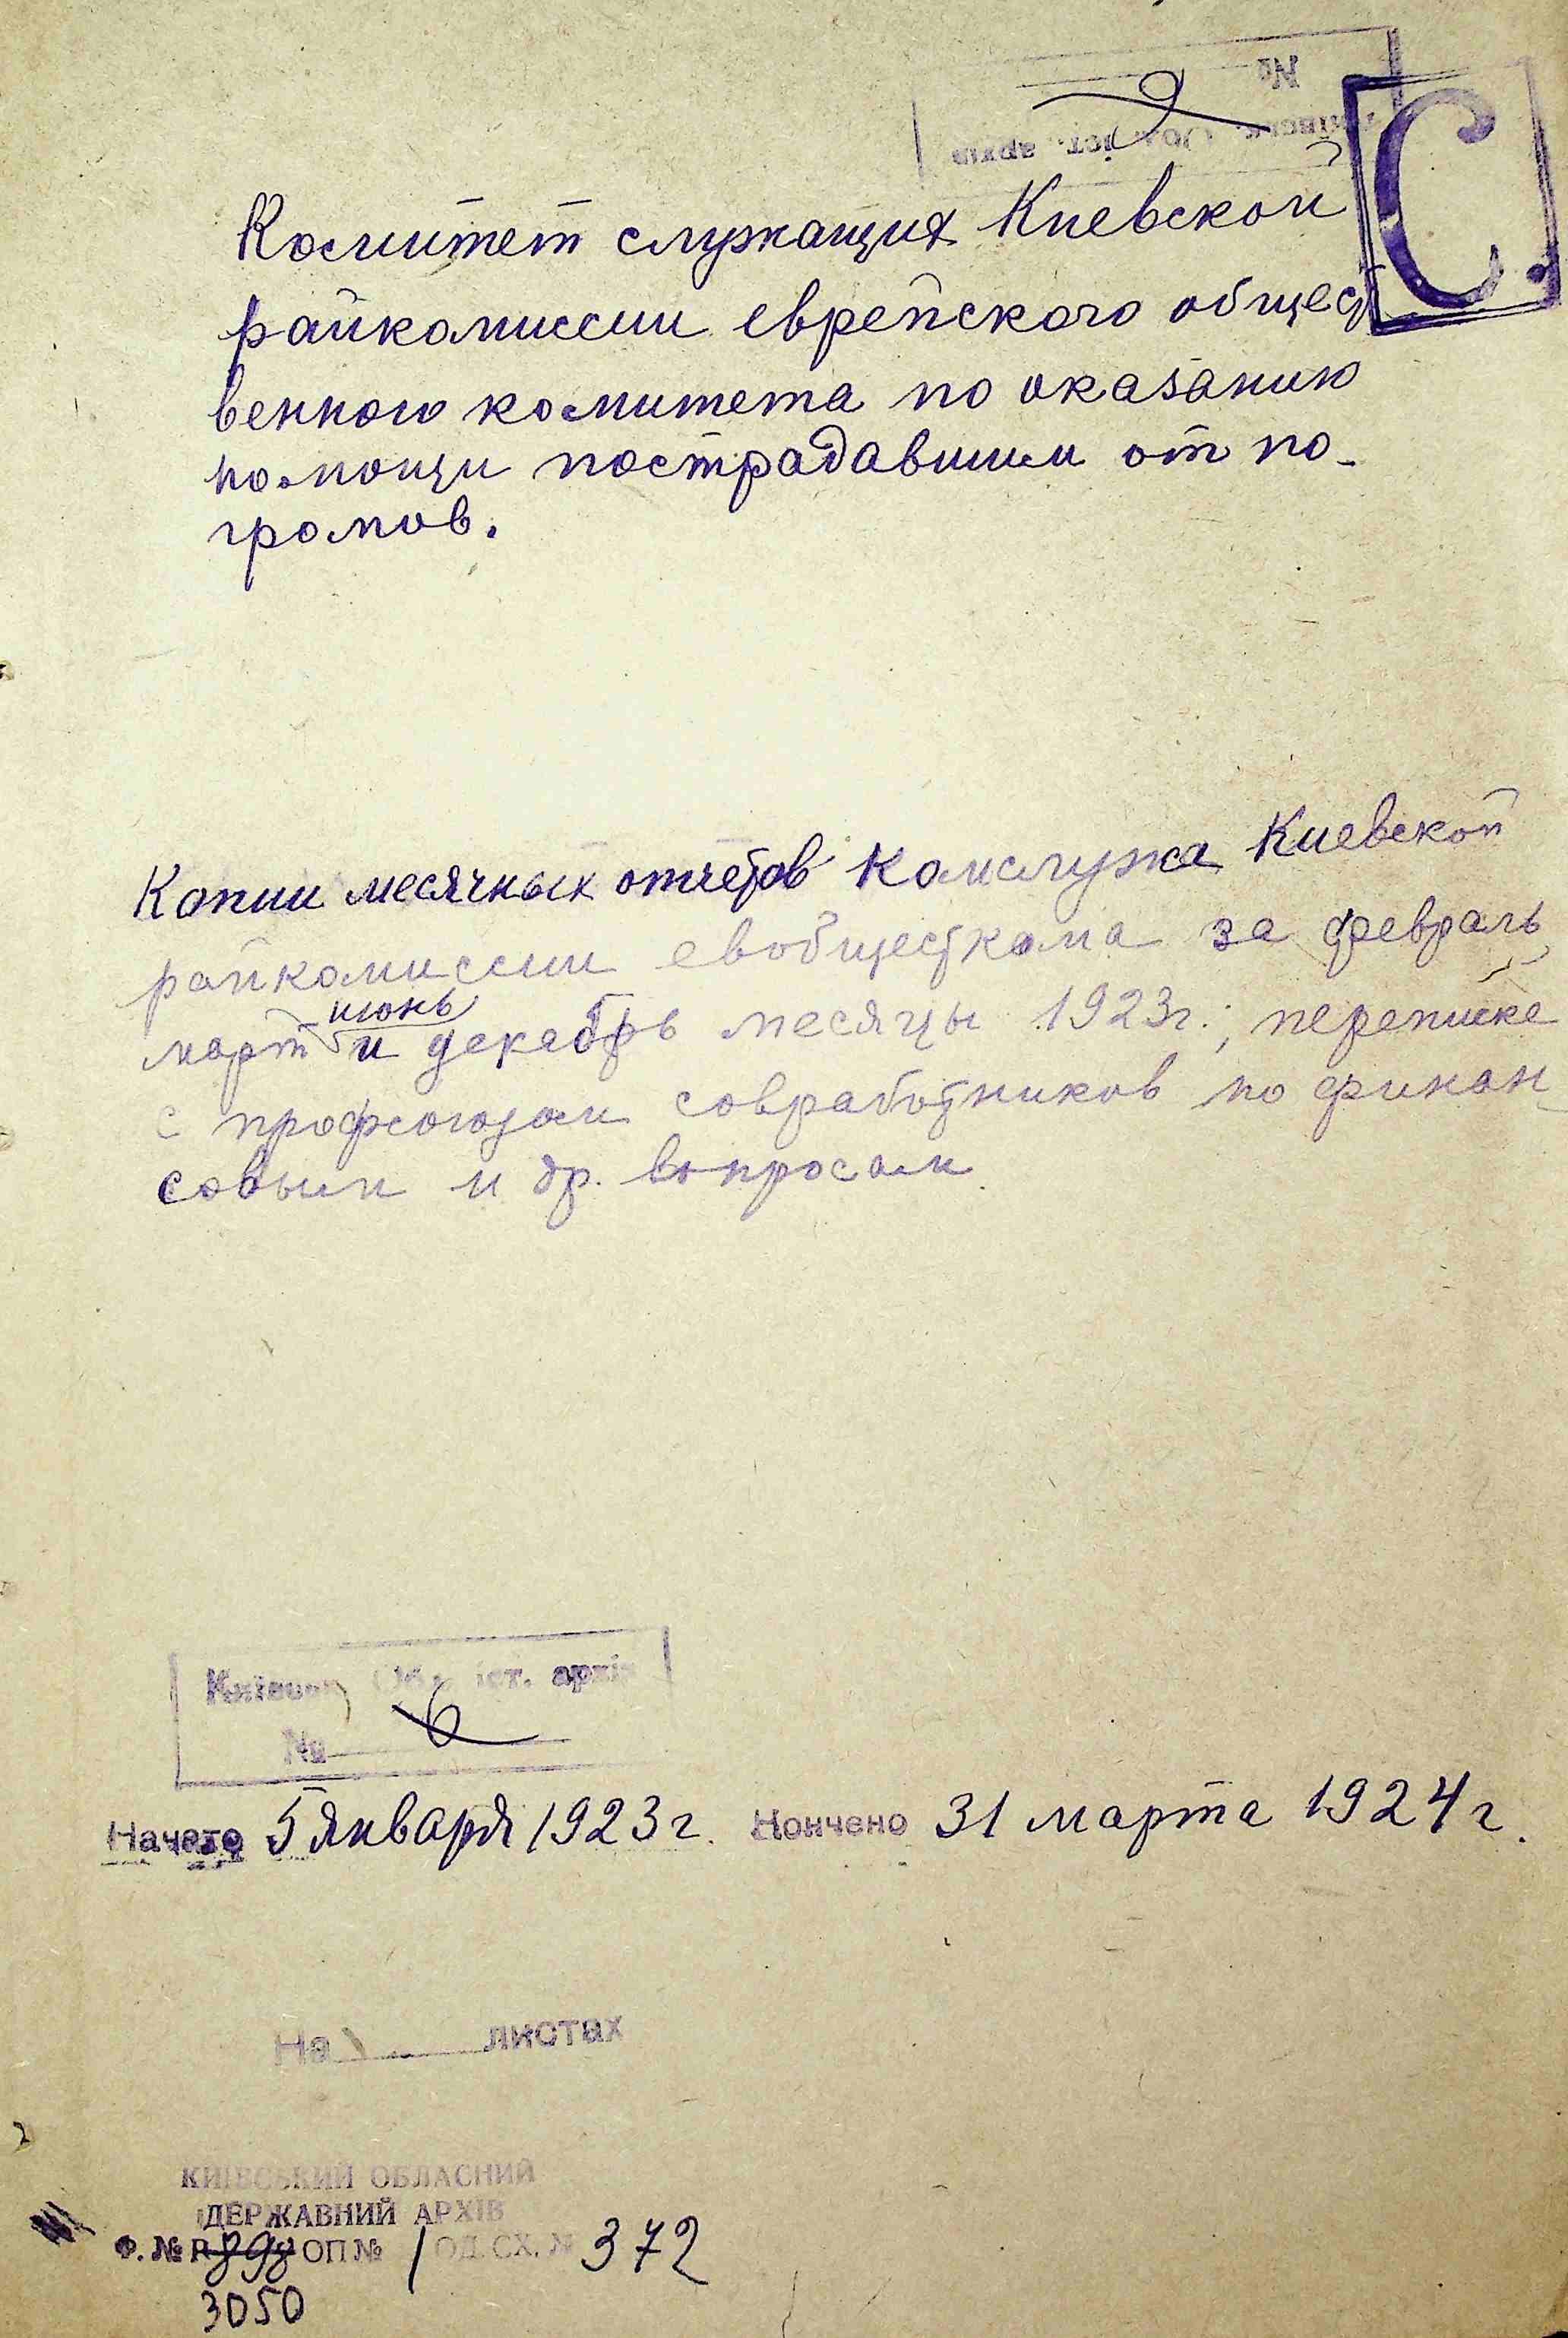 №
іст. архів
С.
Комитет служащих Киевской
райкомиссии еврейского общест
венного комитета по оказанию
помощи пострадавшим от по-
громов.
Копии месячных отчетов Комслужа Киевской
райкомиссии евобщесткома за февраль,
июнь
март и декабрь месяцы 1923г.; переписке
с профсоюзом совработников по финан-
совым и др. вопросам.
Обл. іст. архів
№ 6
Начато 5 января 1923 г. Кончено 31 марта 1924 г.
На листах
КИЇВСЬКИЙ ОБЛАСНИЙ
ДЕРЖАВНИЙ АРХІВ
Ф. № Р ОП № 1 ОД. СХ. № 372
3050